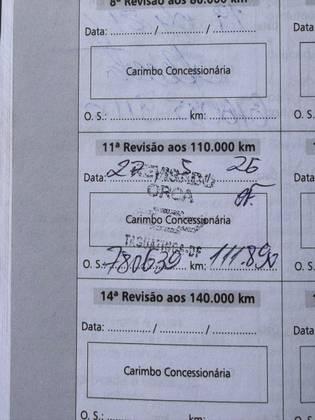 8ª Revisão aos 80.000 km
Data: ............. / ............. / .............
Data:
Carimbo Concessionária
O. S.: ................... km: ...................
O. S.:
11ª Revisão aos 110.000 km
Data: 27 5 26
Data:
REVISADO
ORCA
Carimbo Concessionária
TAGUATINGA-DF
O. S.: 780639 km: 111.890
O. S.:
14ª Revisão aos 140.000 km
Data: ............. / ............. / .............
Data:
Carimbo Concessionária
O. S.: ................... km: ...................
O. S.: